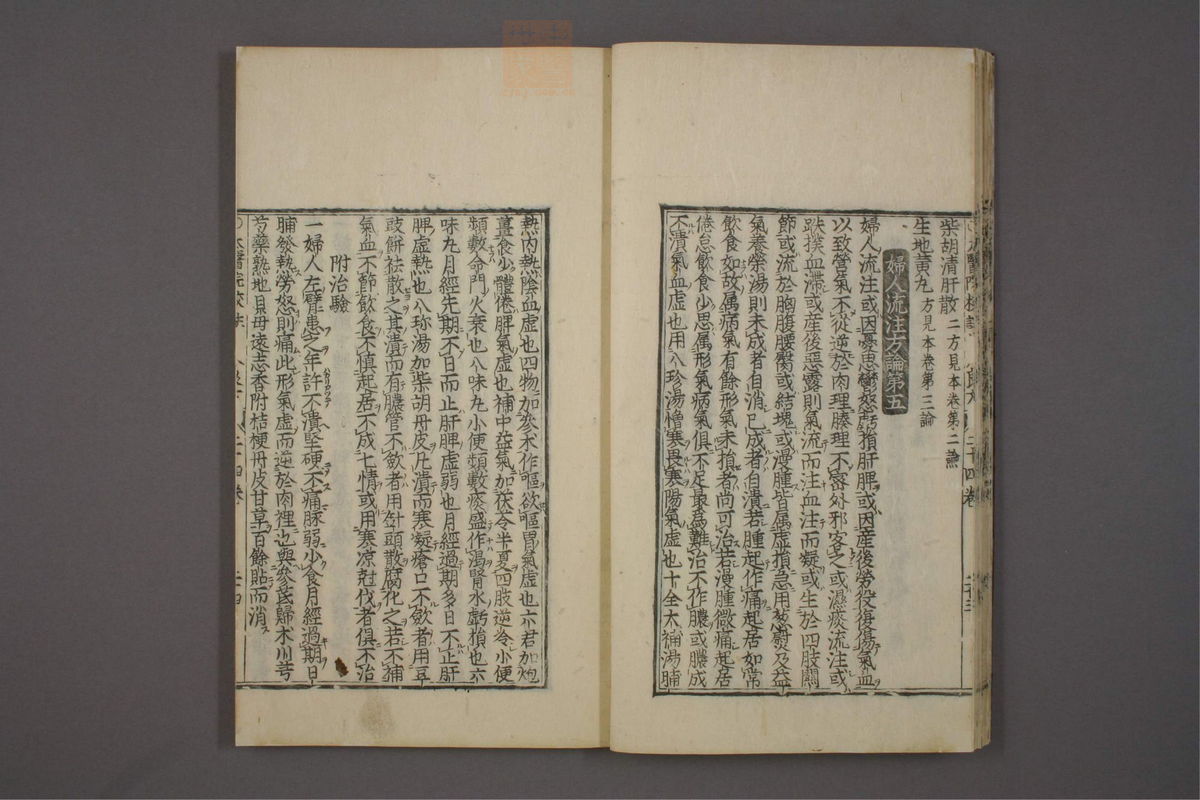 柴胡清肝散 二方見本卷第二論
生地黃丸 方見本卷第三論
婦人流注方論第五
婦人流注或因憂思鬱怒虧損肝脾或因産後勞役復傷氣血
以致營氣不從逆於肉理腠理不密外邪客之或濕痰流注或
跌撲血滯或産後惡露則氣流而注血注而凝或生於四肢關
節或流於胸腹腰臀或結塊或漫腫皆属虚損急用葱熨及益
氣養榮湯則未成者自消已成者自潰若腫起作痛起居如常
飲食如故属病氣有餘形氣未損者尚可治若漫腫微痛起居
倦怠飲食少思属形氣病氣俱不足最為難治不作膿或膿成
不潰氣血虚也用八珍湯憎寒畏寒陽氣虚也十全大補湯脯
熱内熱陰血虚也四物加參朮作嘔欲嘔胃氣虚也六君加炮
薑食少體倦脾氣虚也補中益氣加茯苓半夏四肢逆冷小便
頻數命門火衰也八味丸小便頻數痰盛作渴腎水虧損也六
味丸月經先期不日而止肝脾虚弱也月經過期多日不止肝
脾虚熱也八珍湯加柴胡丹皮凡潰而寒凝瘡口不斂者用豆
豉餅祛散之其潰而有膿管不斂者用針頭散腐化之若不補
氣血不節飲食不慎起居不戒七情或用寒凉尅伐者俱不治
附治驗
一婦人左臂患之年許不潰堅硬不痛脉弱少食月經過期日
脯發熱勞怒則痛此形氣虚而逆於肉裡也與參芪歸朮川芎
芍藥熟地貝母遠志香附桔梗丹皮甘草百餘貼而消